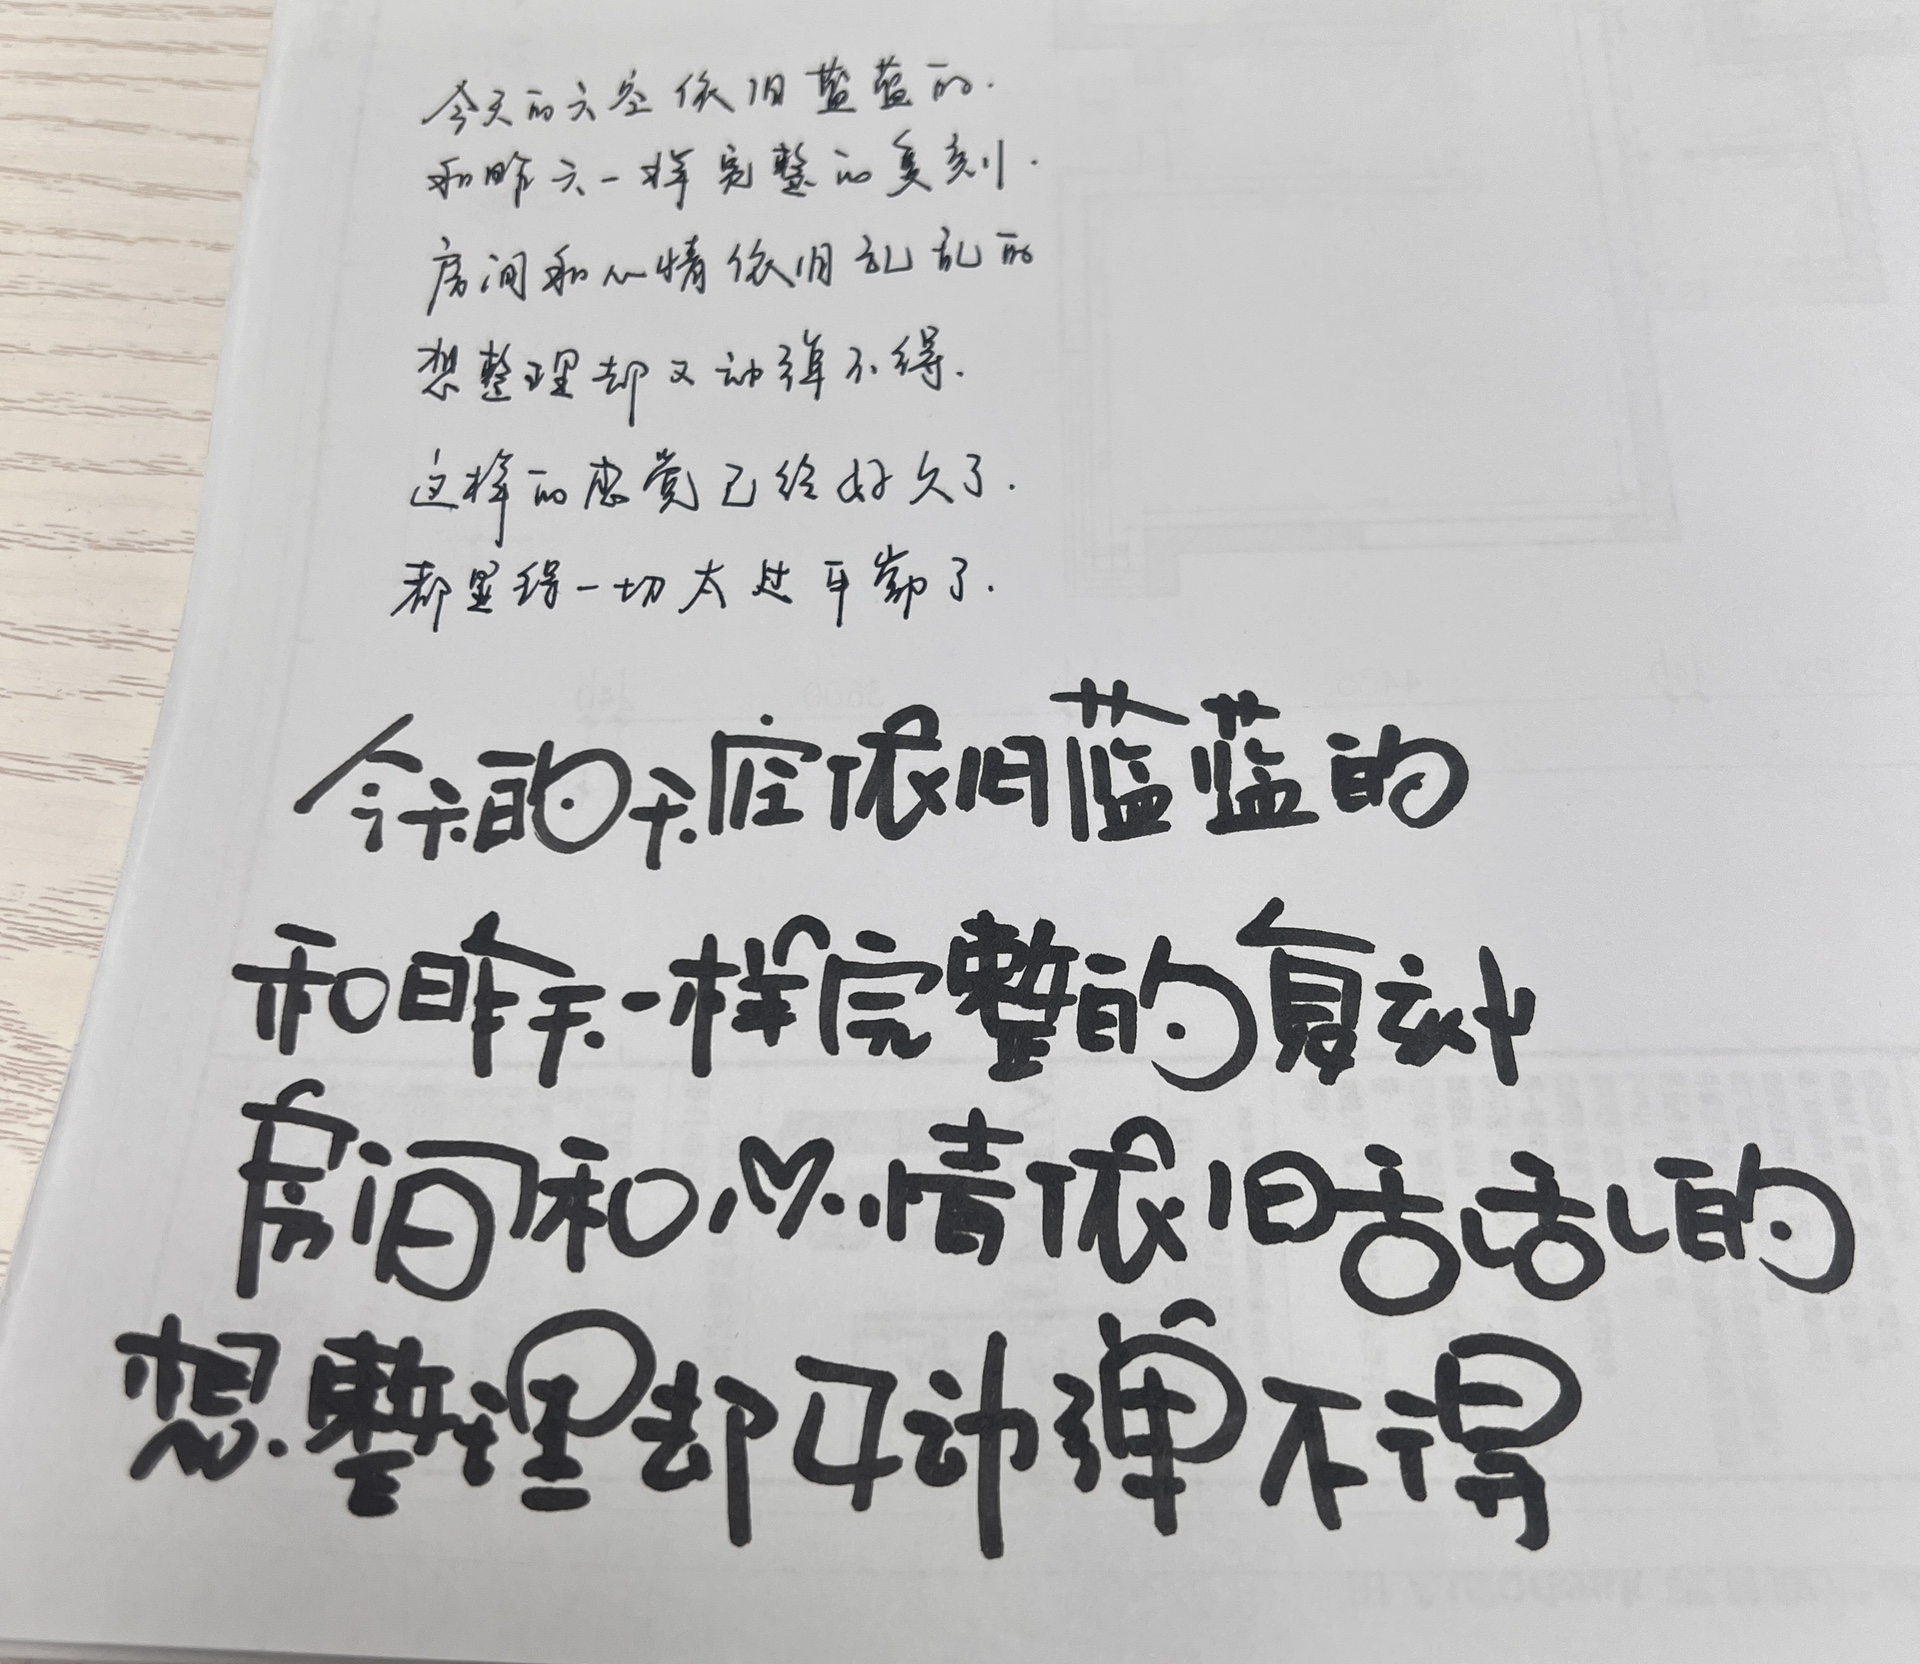 今天的天空依旧蓝蓝的.
和昨天一样完整的复刻.
房间和心情依旧乱乱的
想整理却又动弹不得.
这样的感觉已经好久了.
都显得一切太过平了.
今天的天空依旧蓝蓝的
和昨天一样完整的复刻
房间和心情依旧乱乱的
想整理却又动弹不得